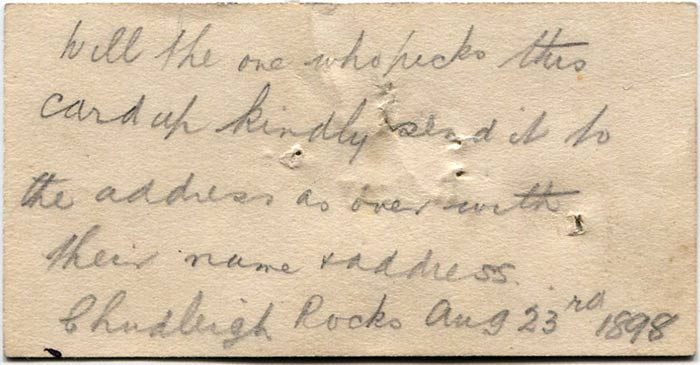 Will the one who picks this
card up kindly send it to
the address as over with
their name & address.
Chudleigh Rocks Aug 23rd 1898